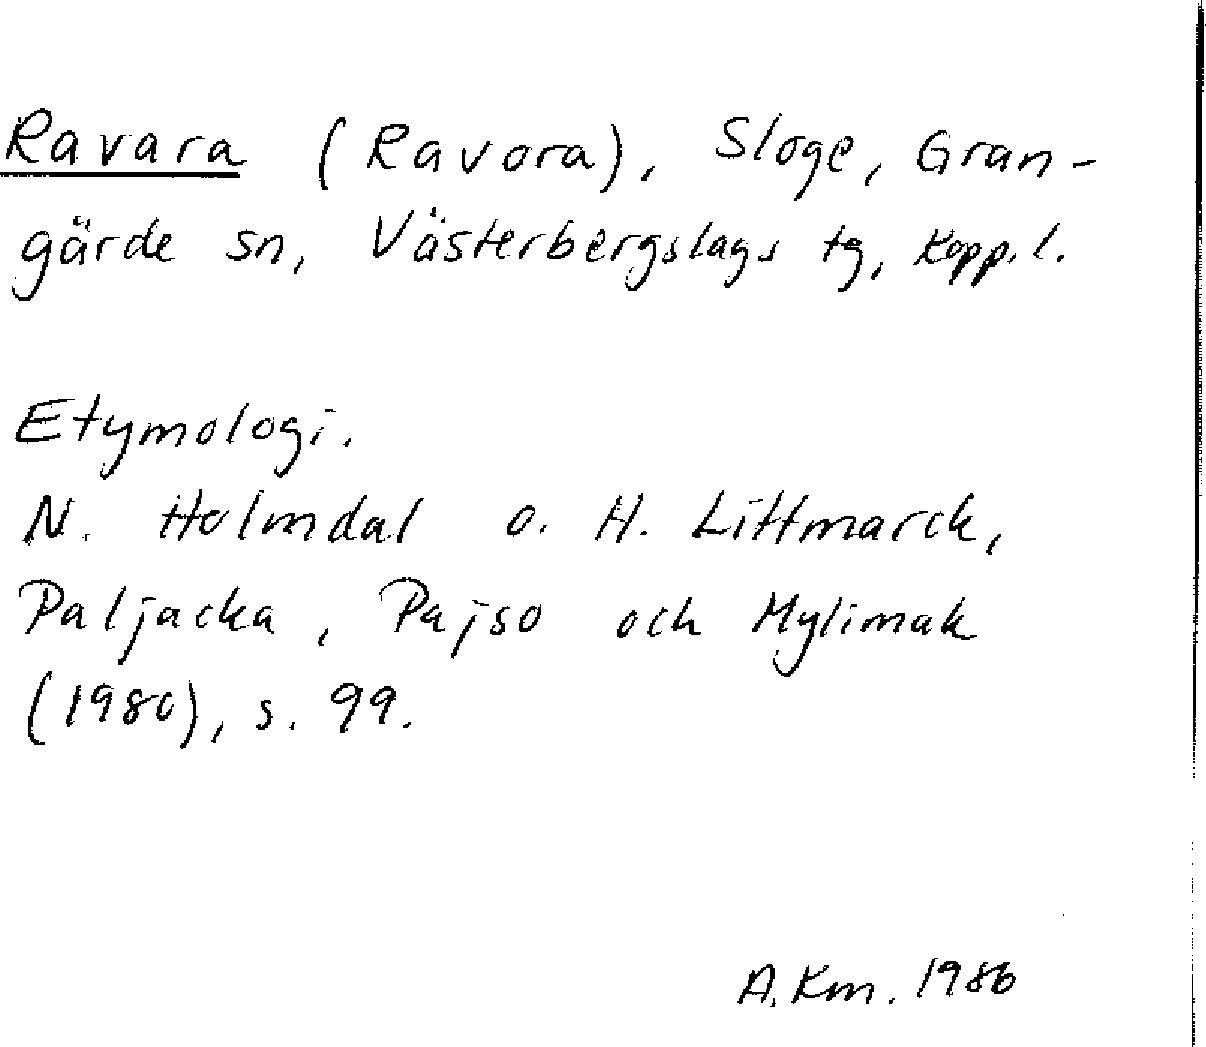 Ravara (Ravora), Sloge, Gran-
gärde sn, Västerbergslags tg, Kopp.l.
Etymologi.
N. Holmdal o. H. Littmarck,
Paljacka, Pajso och Mylimak
(1980), s. 99.
A. Km. 1986